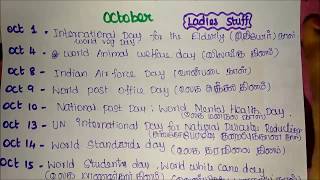 October
Ladies Stuff
Oct 1 - International Day for the Elderly (முதியோர் தினம்)
World Veg Day
Oct 4 - World Animal welfare day (விலங்கு தினம்)
Oct 8 - Indian Air force Day (வான்படை தினம்)
Oct 9 - World post office Day (உலக அஞ்சல் தினம்)
Oct 10 - National post Day : World Mental Health Day
(உலக மனநல தினம்)
Oct 13 - UN International Day for Natural Disaster Reduction
Oct 14 - World Standards day (உலக தர நிர்ணய தினம்)
Oct 15 - World Students day, World white cane day
(உலக மாணவர் தினம்)